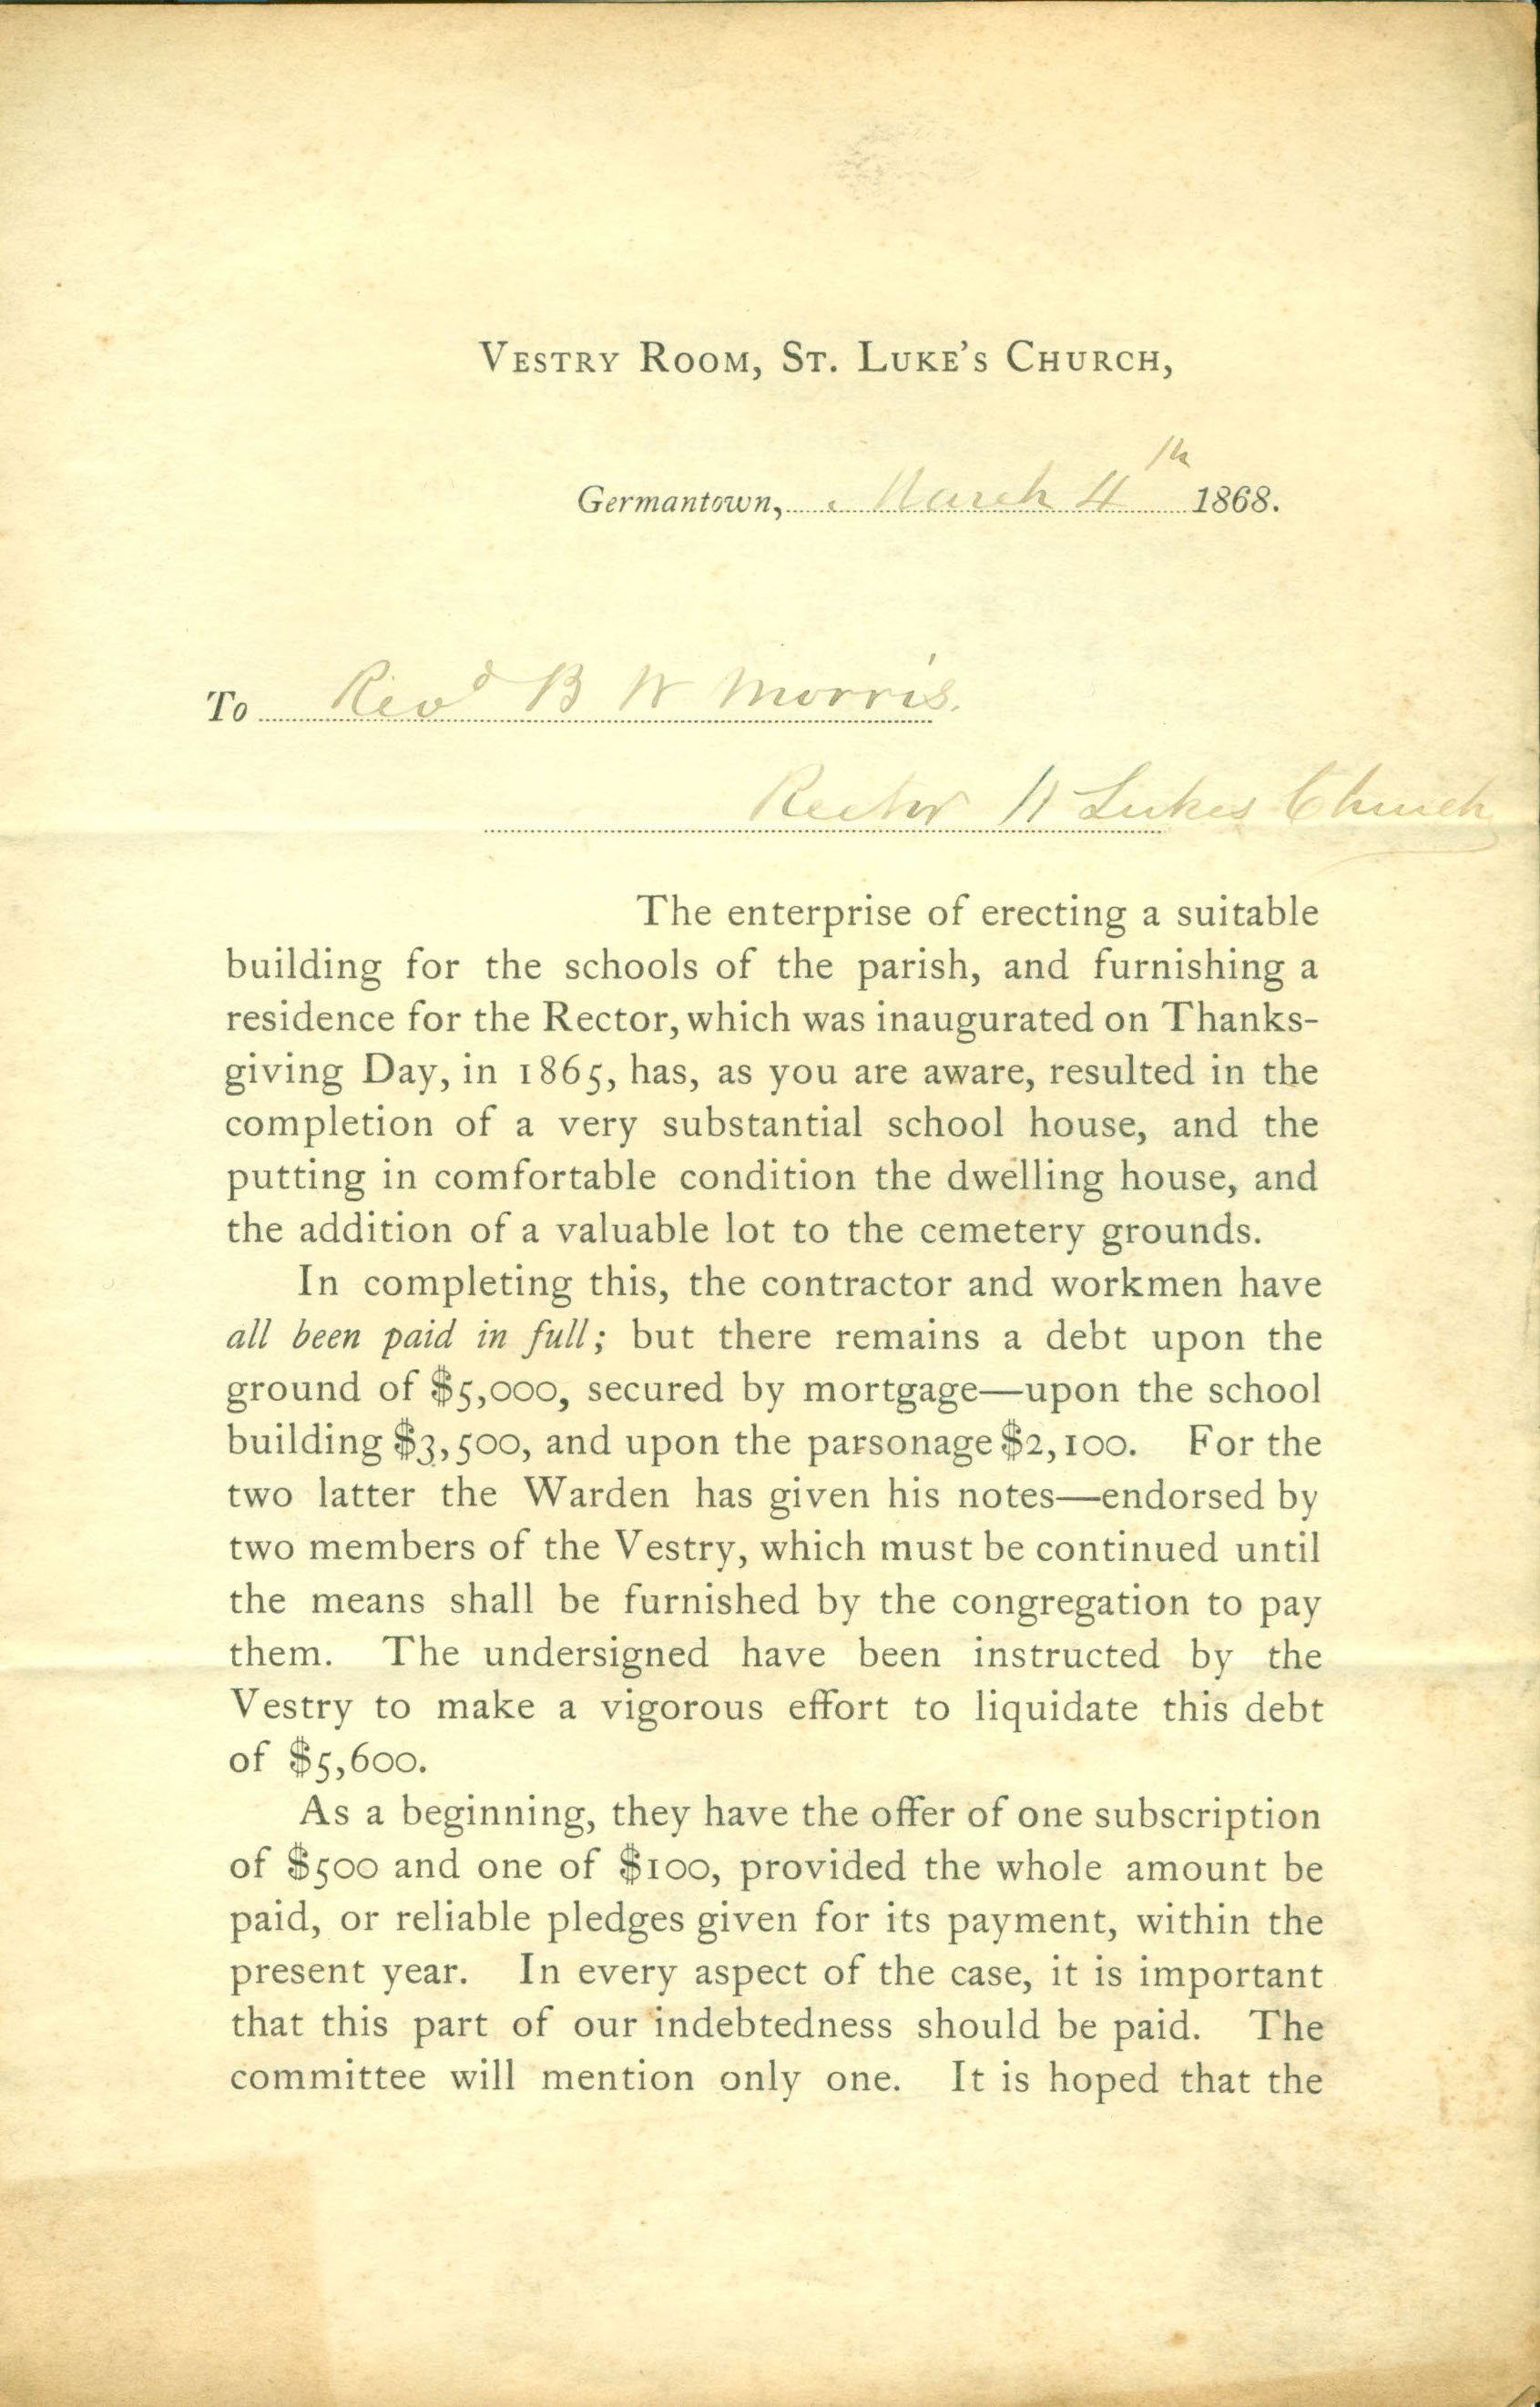 VESTRY ROOM, ST. LUKE'S CHURCH,
Germantown, March 4th 1868.
To Revd B W Morris.
Rector St Lukes Church
The enterprise of erecting a suitable
building for the schools of the parish, and furnishing a
residence for the Rector, which was inaugurated on Thanks-
giving Day, in 1865, has, as you are aware, resulted in the
completion of a very substantial school house, and the
putting in comfortable condition the dwelling house, and
the addition of a valuable lot to the cemetery grounds.
In completing this, the contractor and workmen have
all been paid in full; but there remains a debt upon the
ground of $5,000, secured by mortgage—upon the school
building $3,500, and upon the parsonage $2,100. For the
two latter the Warden has given his notes—endorsed by
two members of the Vestry, which must be continued until
the means shall be furnished by the congregation to pay
them. The undersigned have been instructed by the
Vestry to make a vigorous effort to liquidate this debt
of $5,600.
As a beginning, they have the offer of one subscription
of $500 and one of $100, provided the whole amount be
paid, or reliable pledges given for its payment, within the
present year. In every aspect of the case, it is important
that this part of our indebtedness should be paid. The
committee will mention only one. It is hoped that the